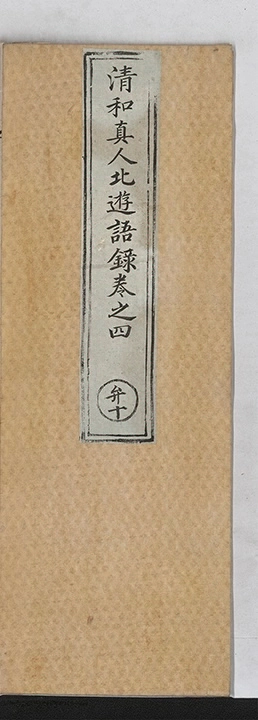 清和真人北遊語錄卷之四
弁十